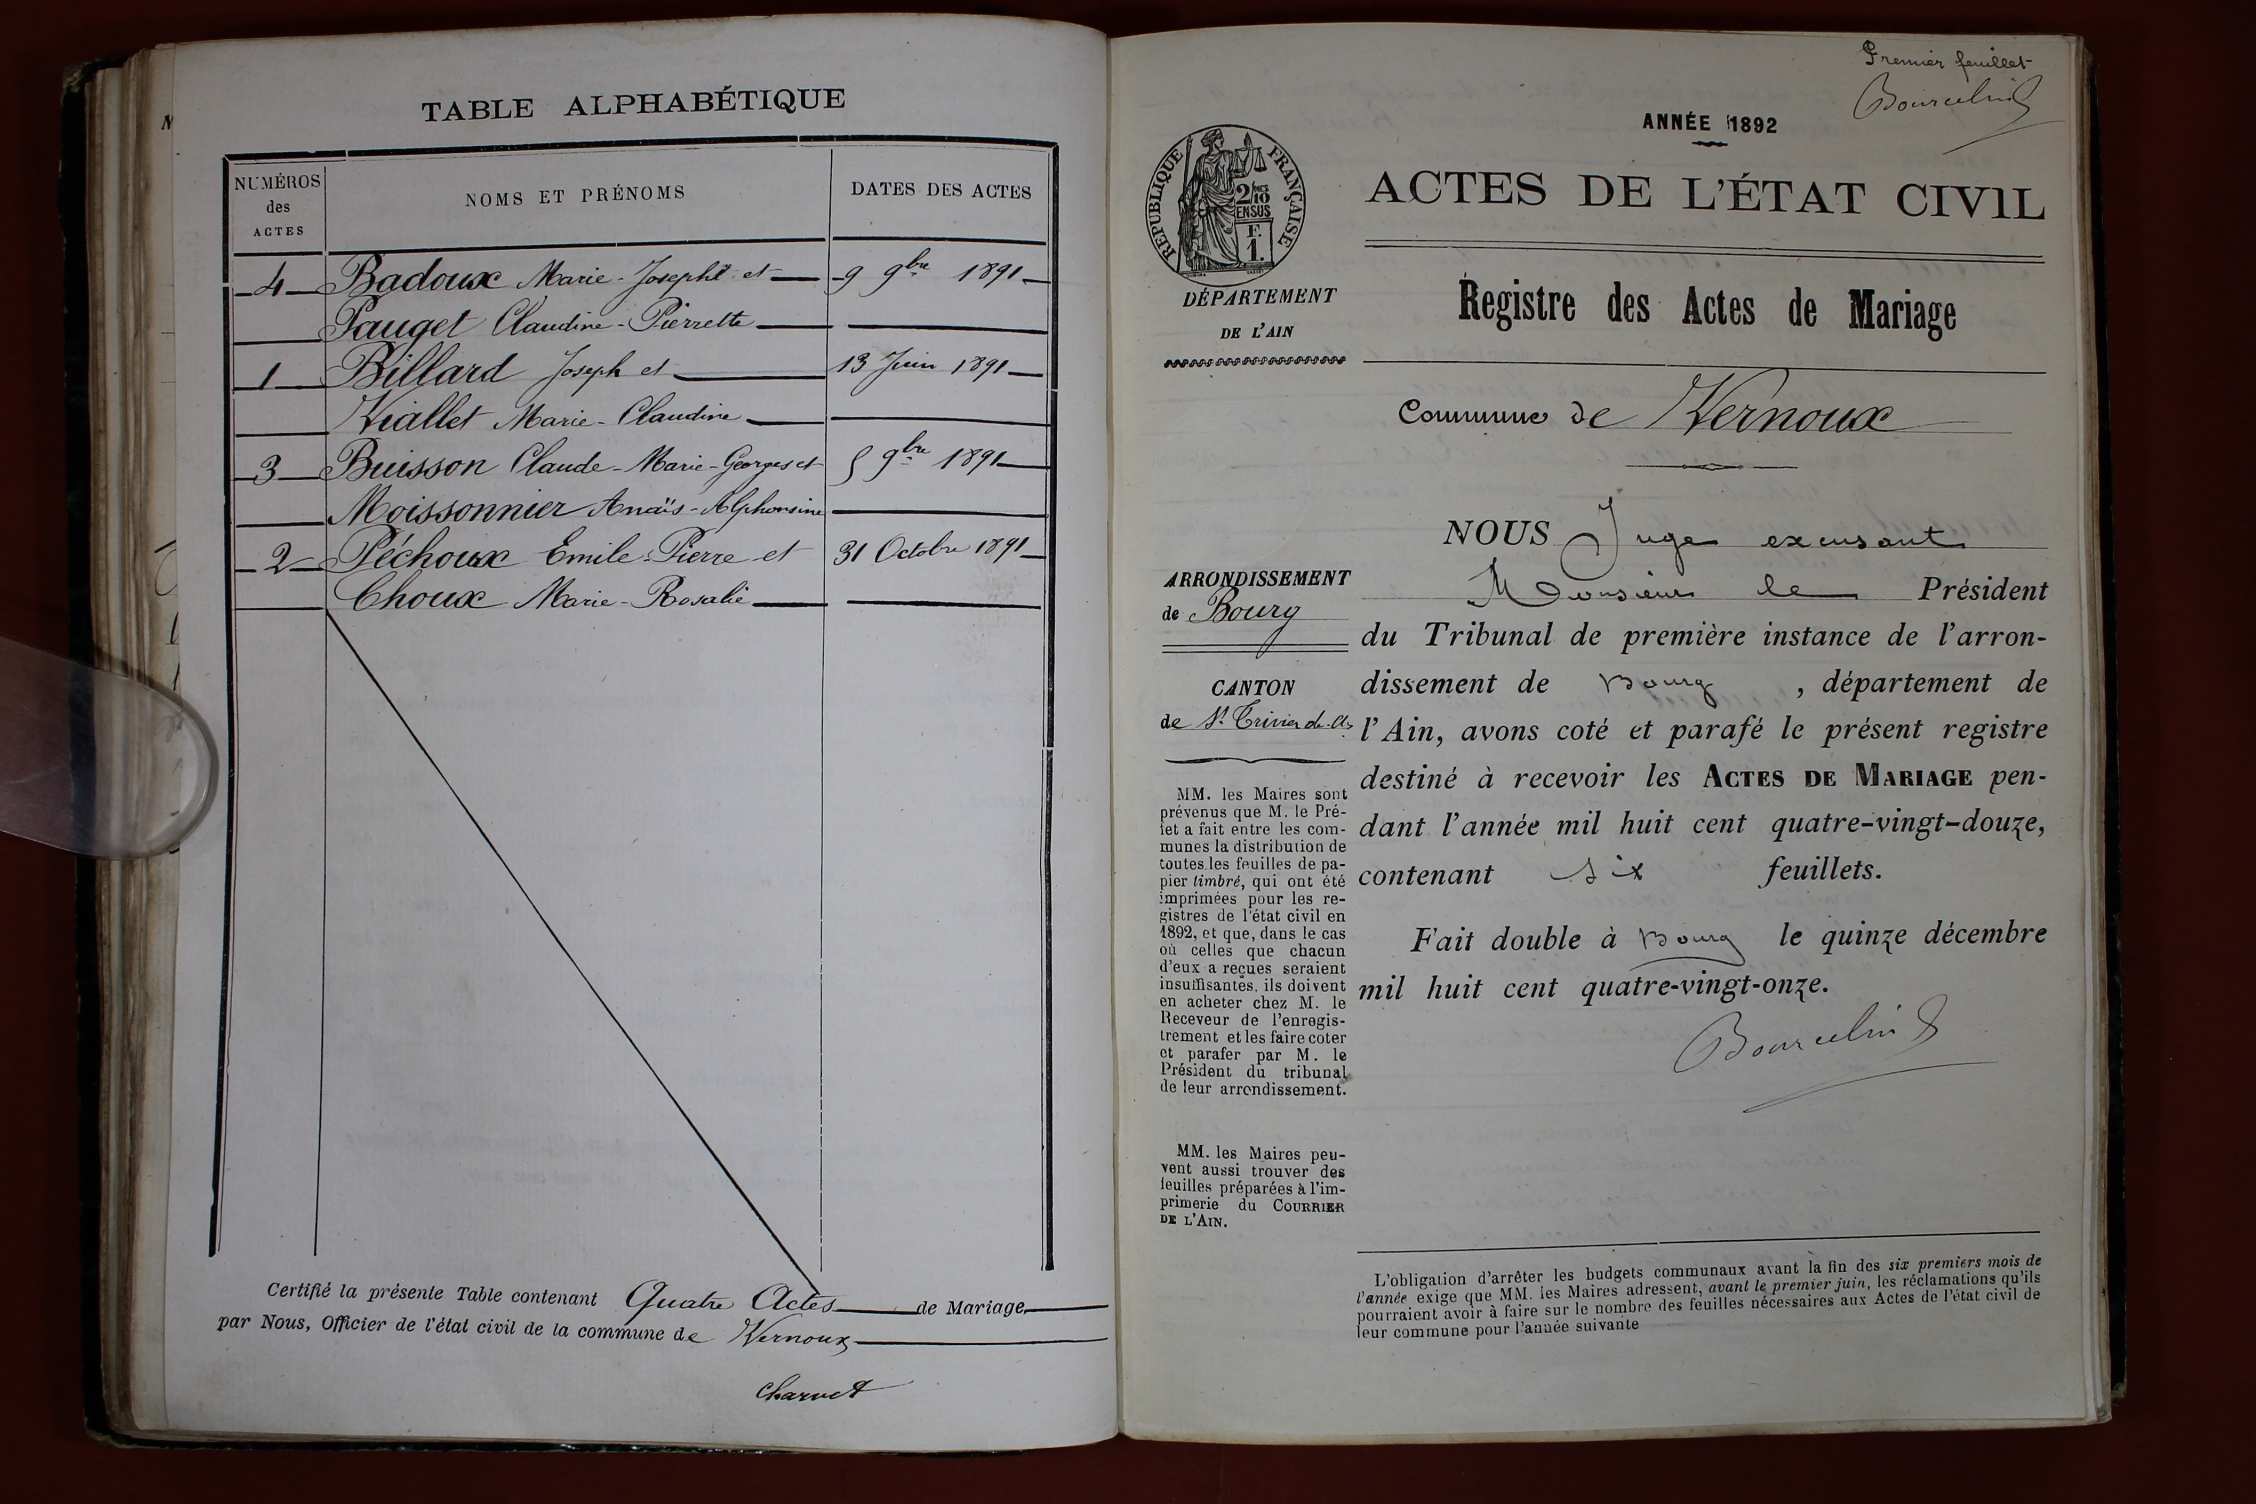 TABLE ALPHABÉTIQUE
NUMÉROS des ACTES
NOMS ET PRÉNOMS
DATES DES ACTES
4 Badoux Marie-Josephe et 9 9bre 1891
Pauget Claudine-Pierrette
1 Billard Joseph et 13 Juin 1891
Viallet Marie-Claudine
3 Buisson Claude-Marie-Georges et 5 9bre 1891
Moissonnier Anaïs-Alphonsine
2 Péchoux Emile-Pierre et 31 Octobre 1891
Choux Marie-Rosalie
Certifié la présente Table contenant Quatre Actes de Mariage,
par Nous, Officier de l'état civil de la commune de Vernoux
Charvet
Premier feuillet
ANNÉE 1892
RÉPUBLIQUE FRANÇAISE
2/10 EN SUS
F. 1.
ACTES DE L'ÉTAT CIVIL
DÉPARTEMENT
DE L'AIN
Registre des Actes de Mariage
Commune de Vernoux
ARRONDISSEMENT
de Bourg
CANTON
de St Trivier de
MM. les Maires sont
prévenus que M. le Pré-
fet a fait entre les com-
munes la distribution de
toutes les feuilles de pa-
pier timbré, qui ont été
imprimées pour les re-
gistres de l'état civil en
1892, et que, dans le cas
où celles que chacun
d'eux a reçues seraient
insuffisantes, ils doivent
en acheter chez M. le
Receveur de l'enregis-
trement et les faire coter
et parafer par M. le
Président du tribunal
de leur arrondissement.
MM. les Maires peu-
vent aussi trouver des
feuilles préparées à l'im-
primerie du COURRIER
DE L'AIN.
NOUS Juge excusant
Monsieur le Président
du Tribunal de première instance de l'arron-
dissement de Bourg, département de
l'Ain, avons coté et parafé le présent registre
destiné à recevoir les ACTES DE MARIAGE pen-
dant l'année mil huit cent quatre-vingt-douze,
contenant six feuillets.
Fait double à Bourg le quinze décembre
mil huit cent quatre-vingt-onze.
L'obligation d'arrêter les budgets communaux avant la fin des six premiers mois de
l'année exige que MM. les Maires adressent, avant le premier juin, les réclamations qu'ils
pourraient avoir à faire sur le nombre des feuilles nécessaires aux Actes de l'état civil de
leur commune pour l'année suivante